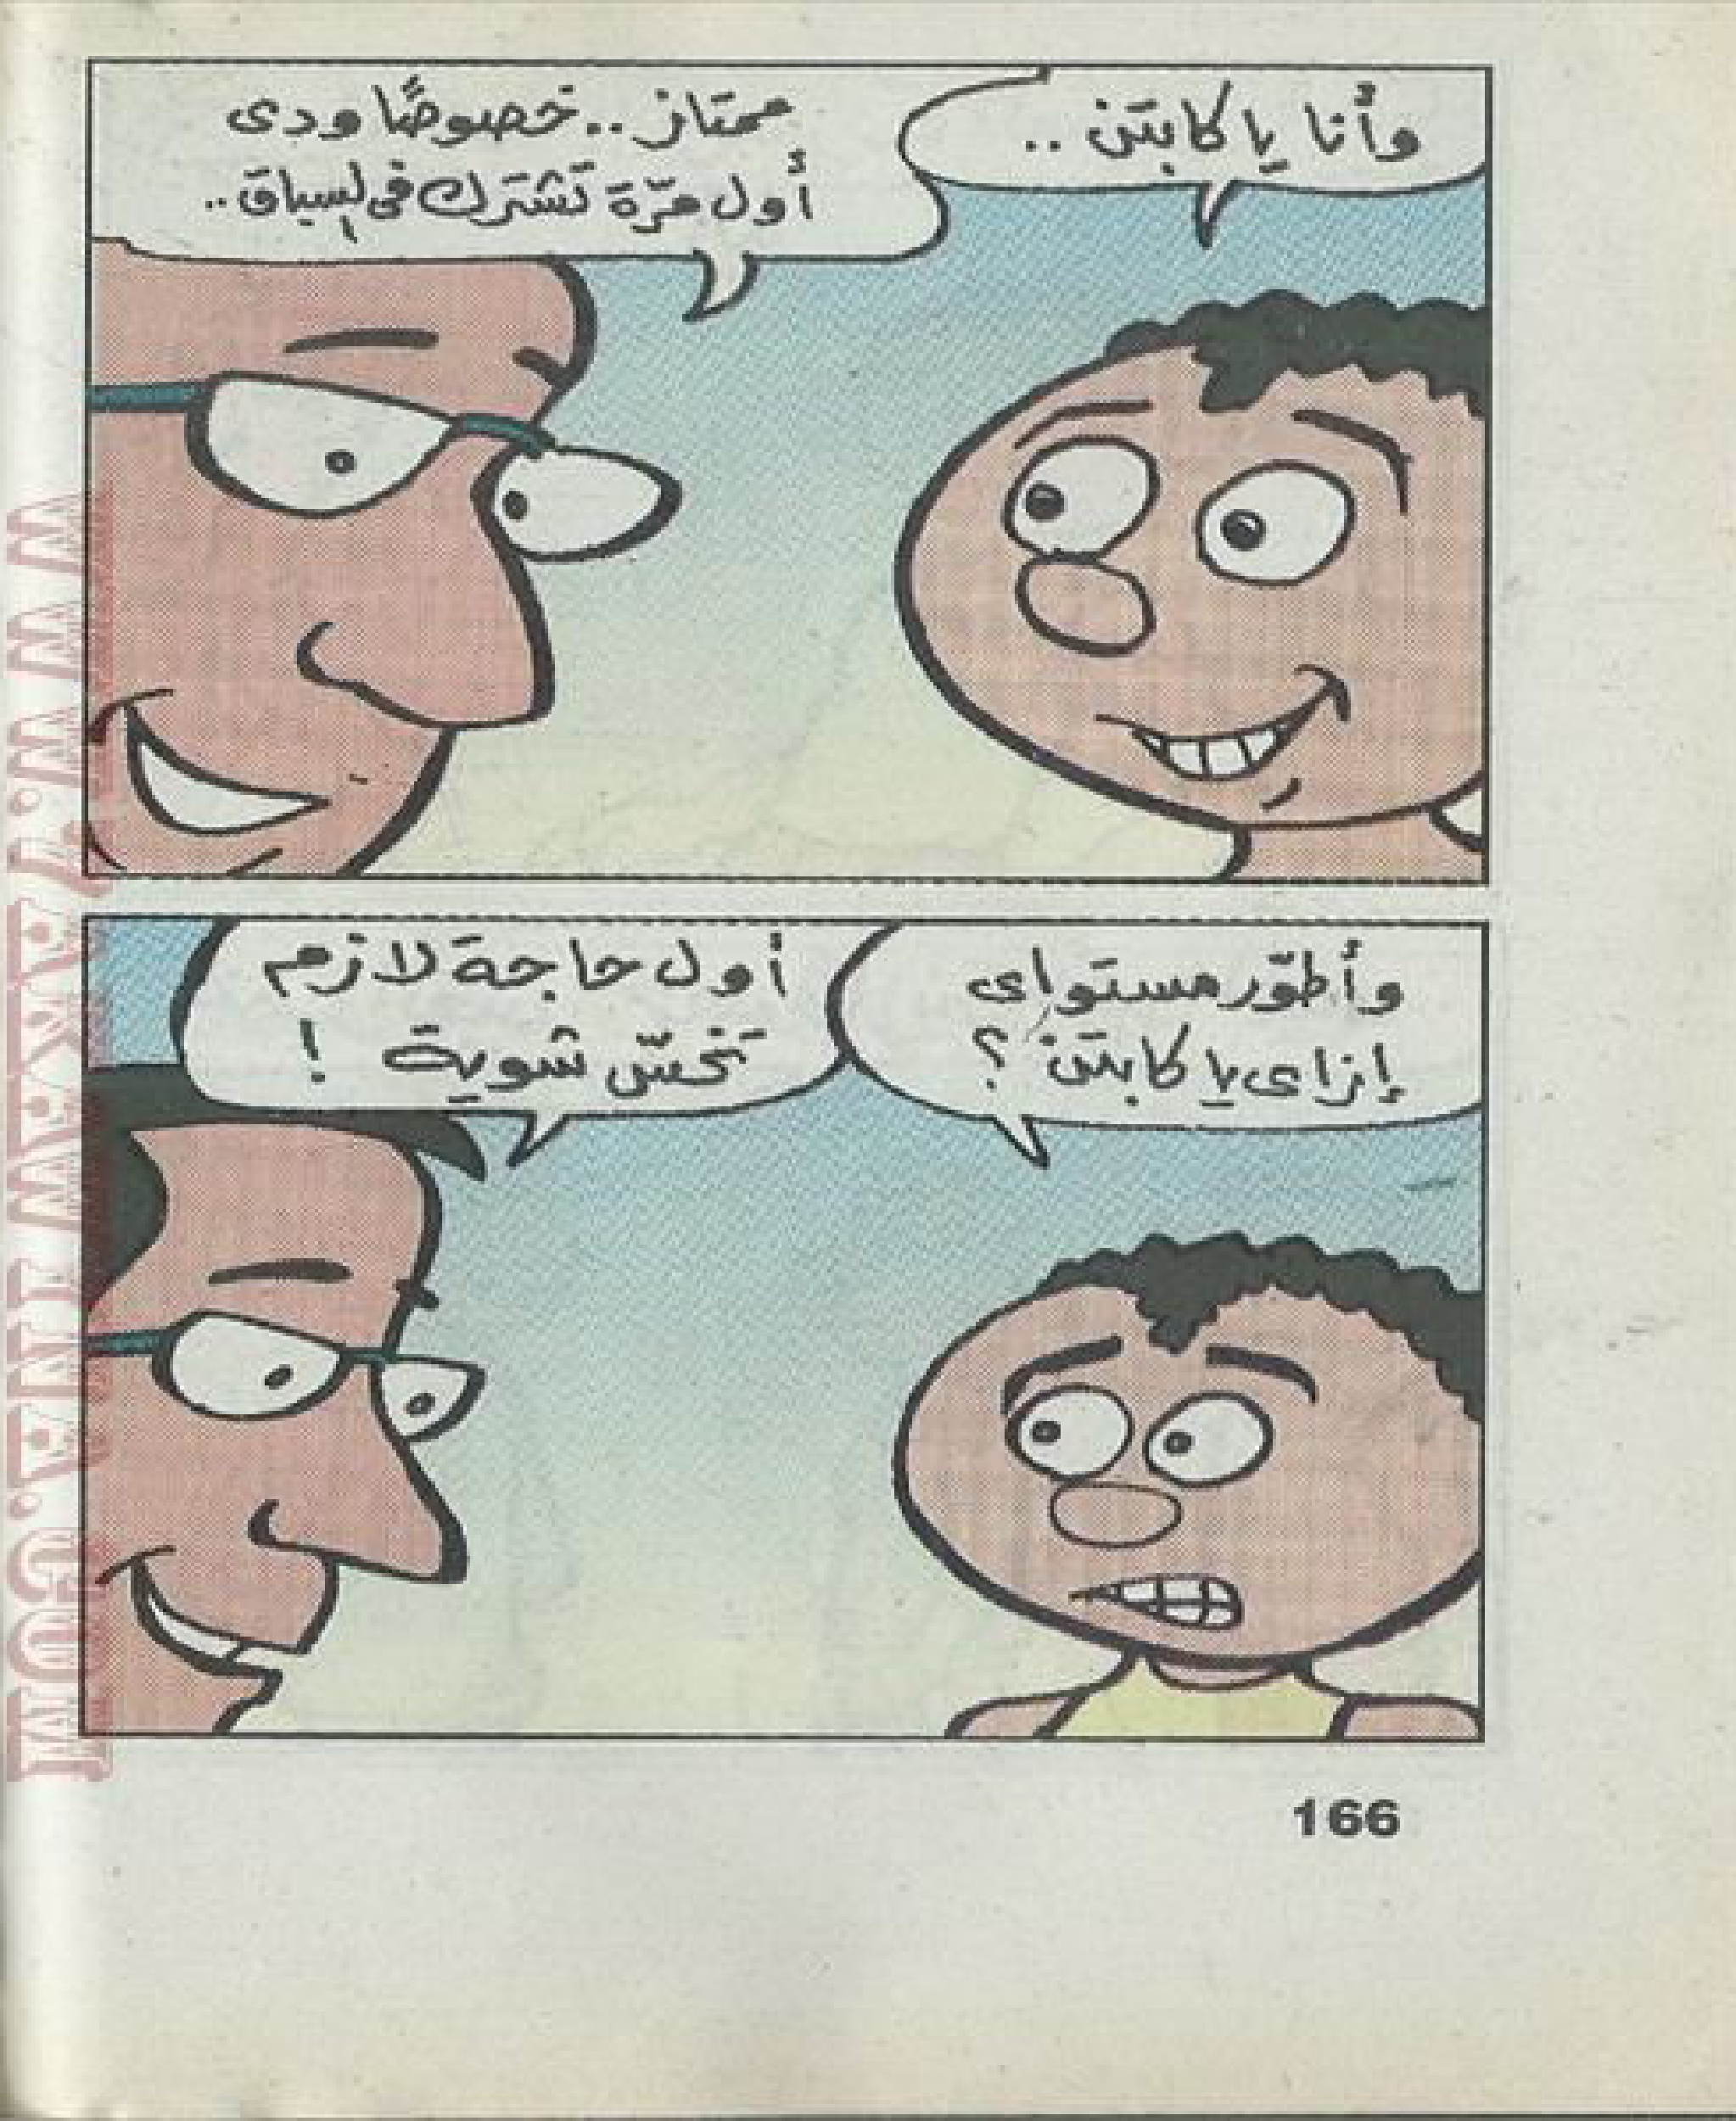 وأنا يا كابتن ..
ممتاز .. خصوصًا ودى
أول مرّة تشترك فى السباق ..
وأطوّر مستواى
إزاى يا كابتن ؟
أول حاجة لازم
تخسّ شوية !
166
WWW.LAKAWINA.COM